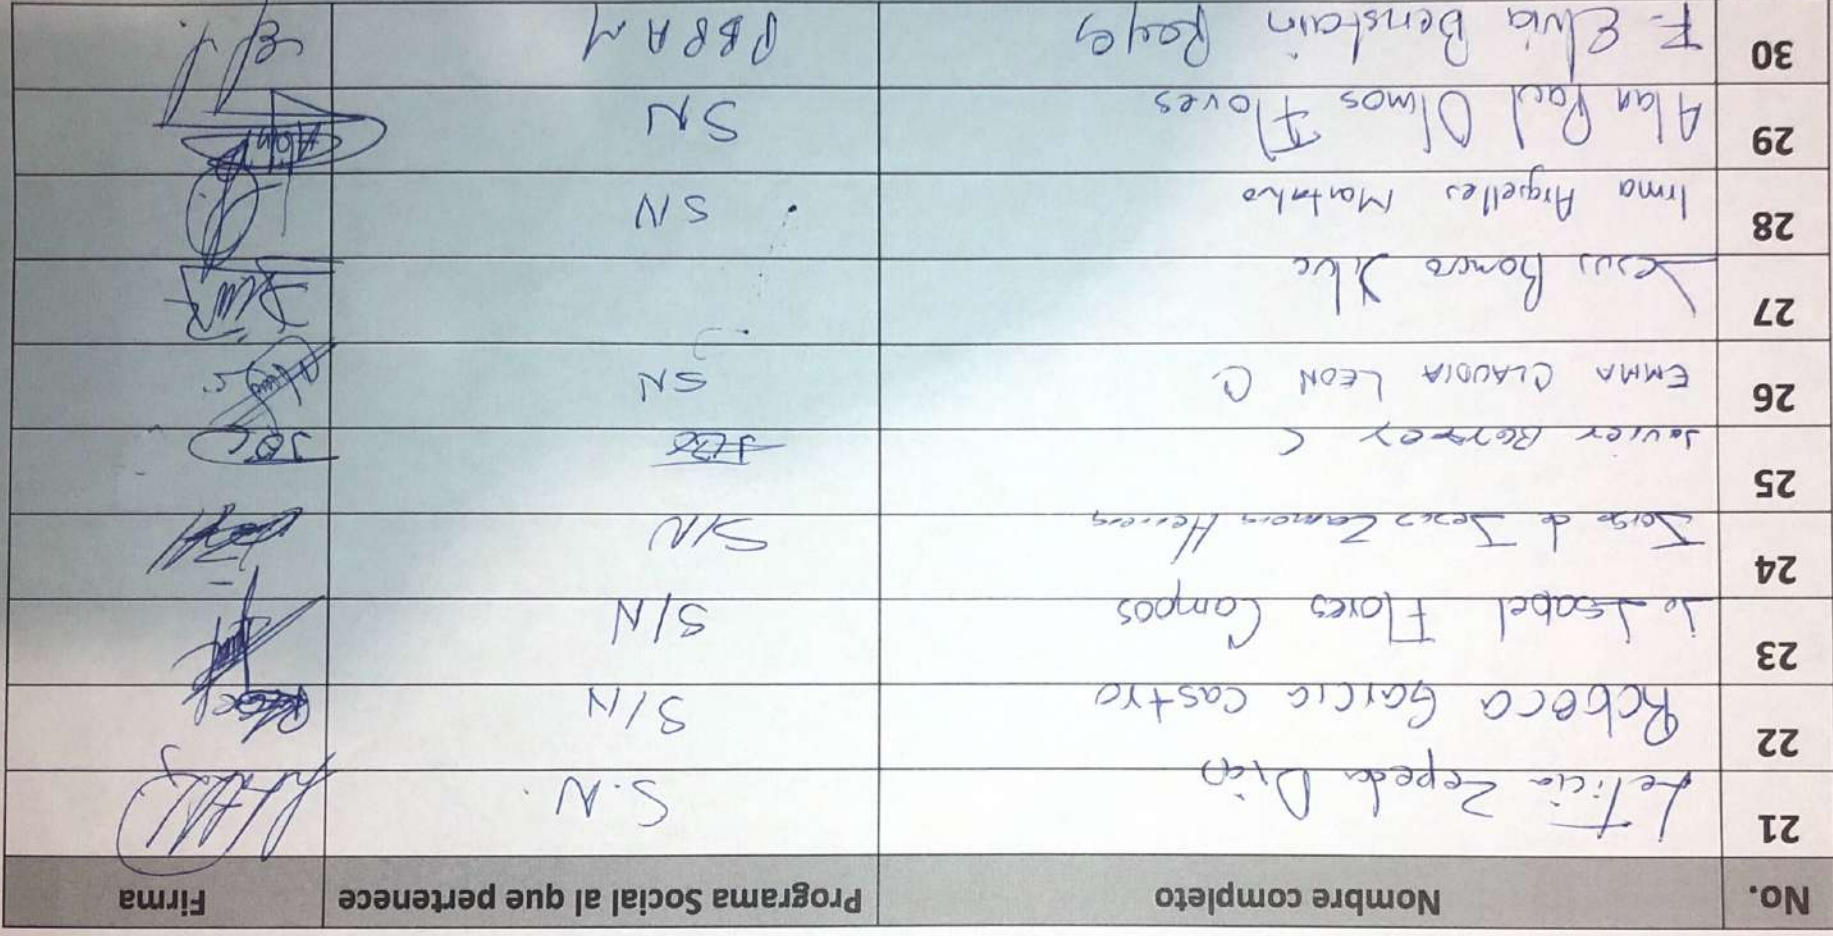 No. Nombre completo Programa Social al que pertenece Firma
21 Leticia Zepeda Díaz S.N.
22 Rebeca Garcia Castro S/N
23 Isabel Flores Campos S/N
24 Jorge de Jesus Zamora Herrera S/N
25 Javier C JBC
26 EMMA CLAUDIA LEON C SN
27 Jesus Romero Silva
28 Irma Arguelles SN
29 Alan Paul Olmos Flores SN Alan
30 F. Elvia Benstain Reyes PBPAM